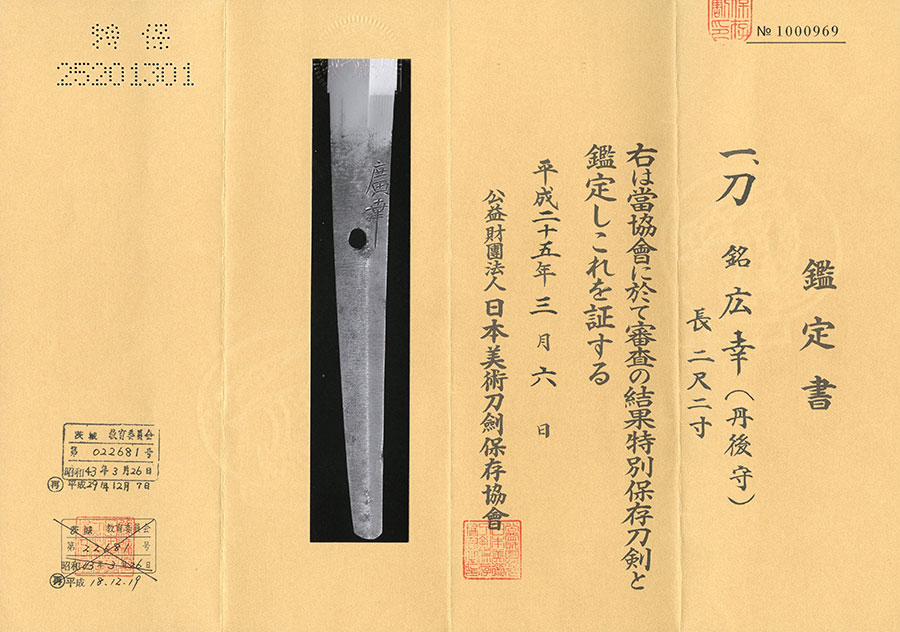 保存
割印
№ 1000969
鑑定書
一、刀 銘 広幸(丹後守)
長 二尺二寸
右は當協會に於て審査の結果特別保存刀剣と
鑑定しこれを証する
平成二十五年 三月 六日
公益財團法人 日本美術刀劍保存協會
廣幸
特保
25201301
茨城 教育委員会
第 022681 号
昭和43年3月26日
再 平成29年12月7日
茨城 教育委員会
第 22681 号
昭和43年3月26日
再 平成 18.12.19